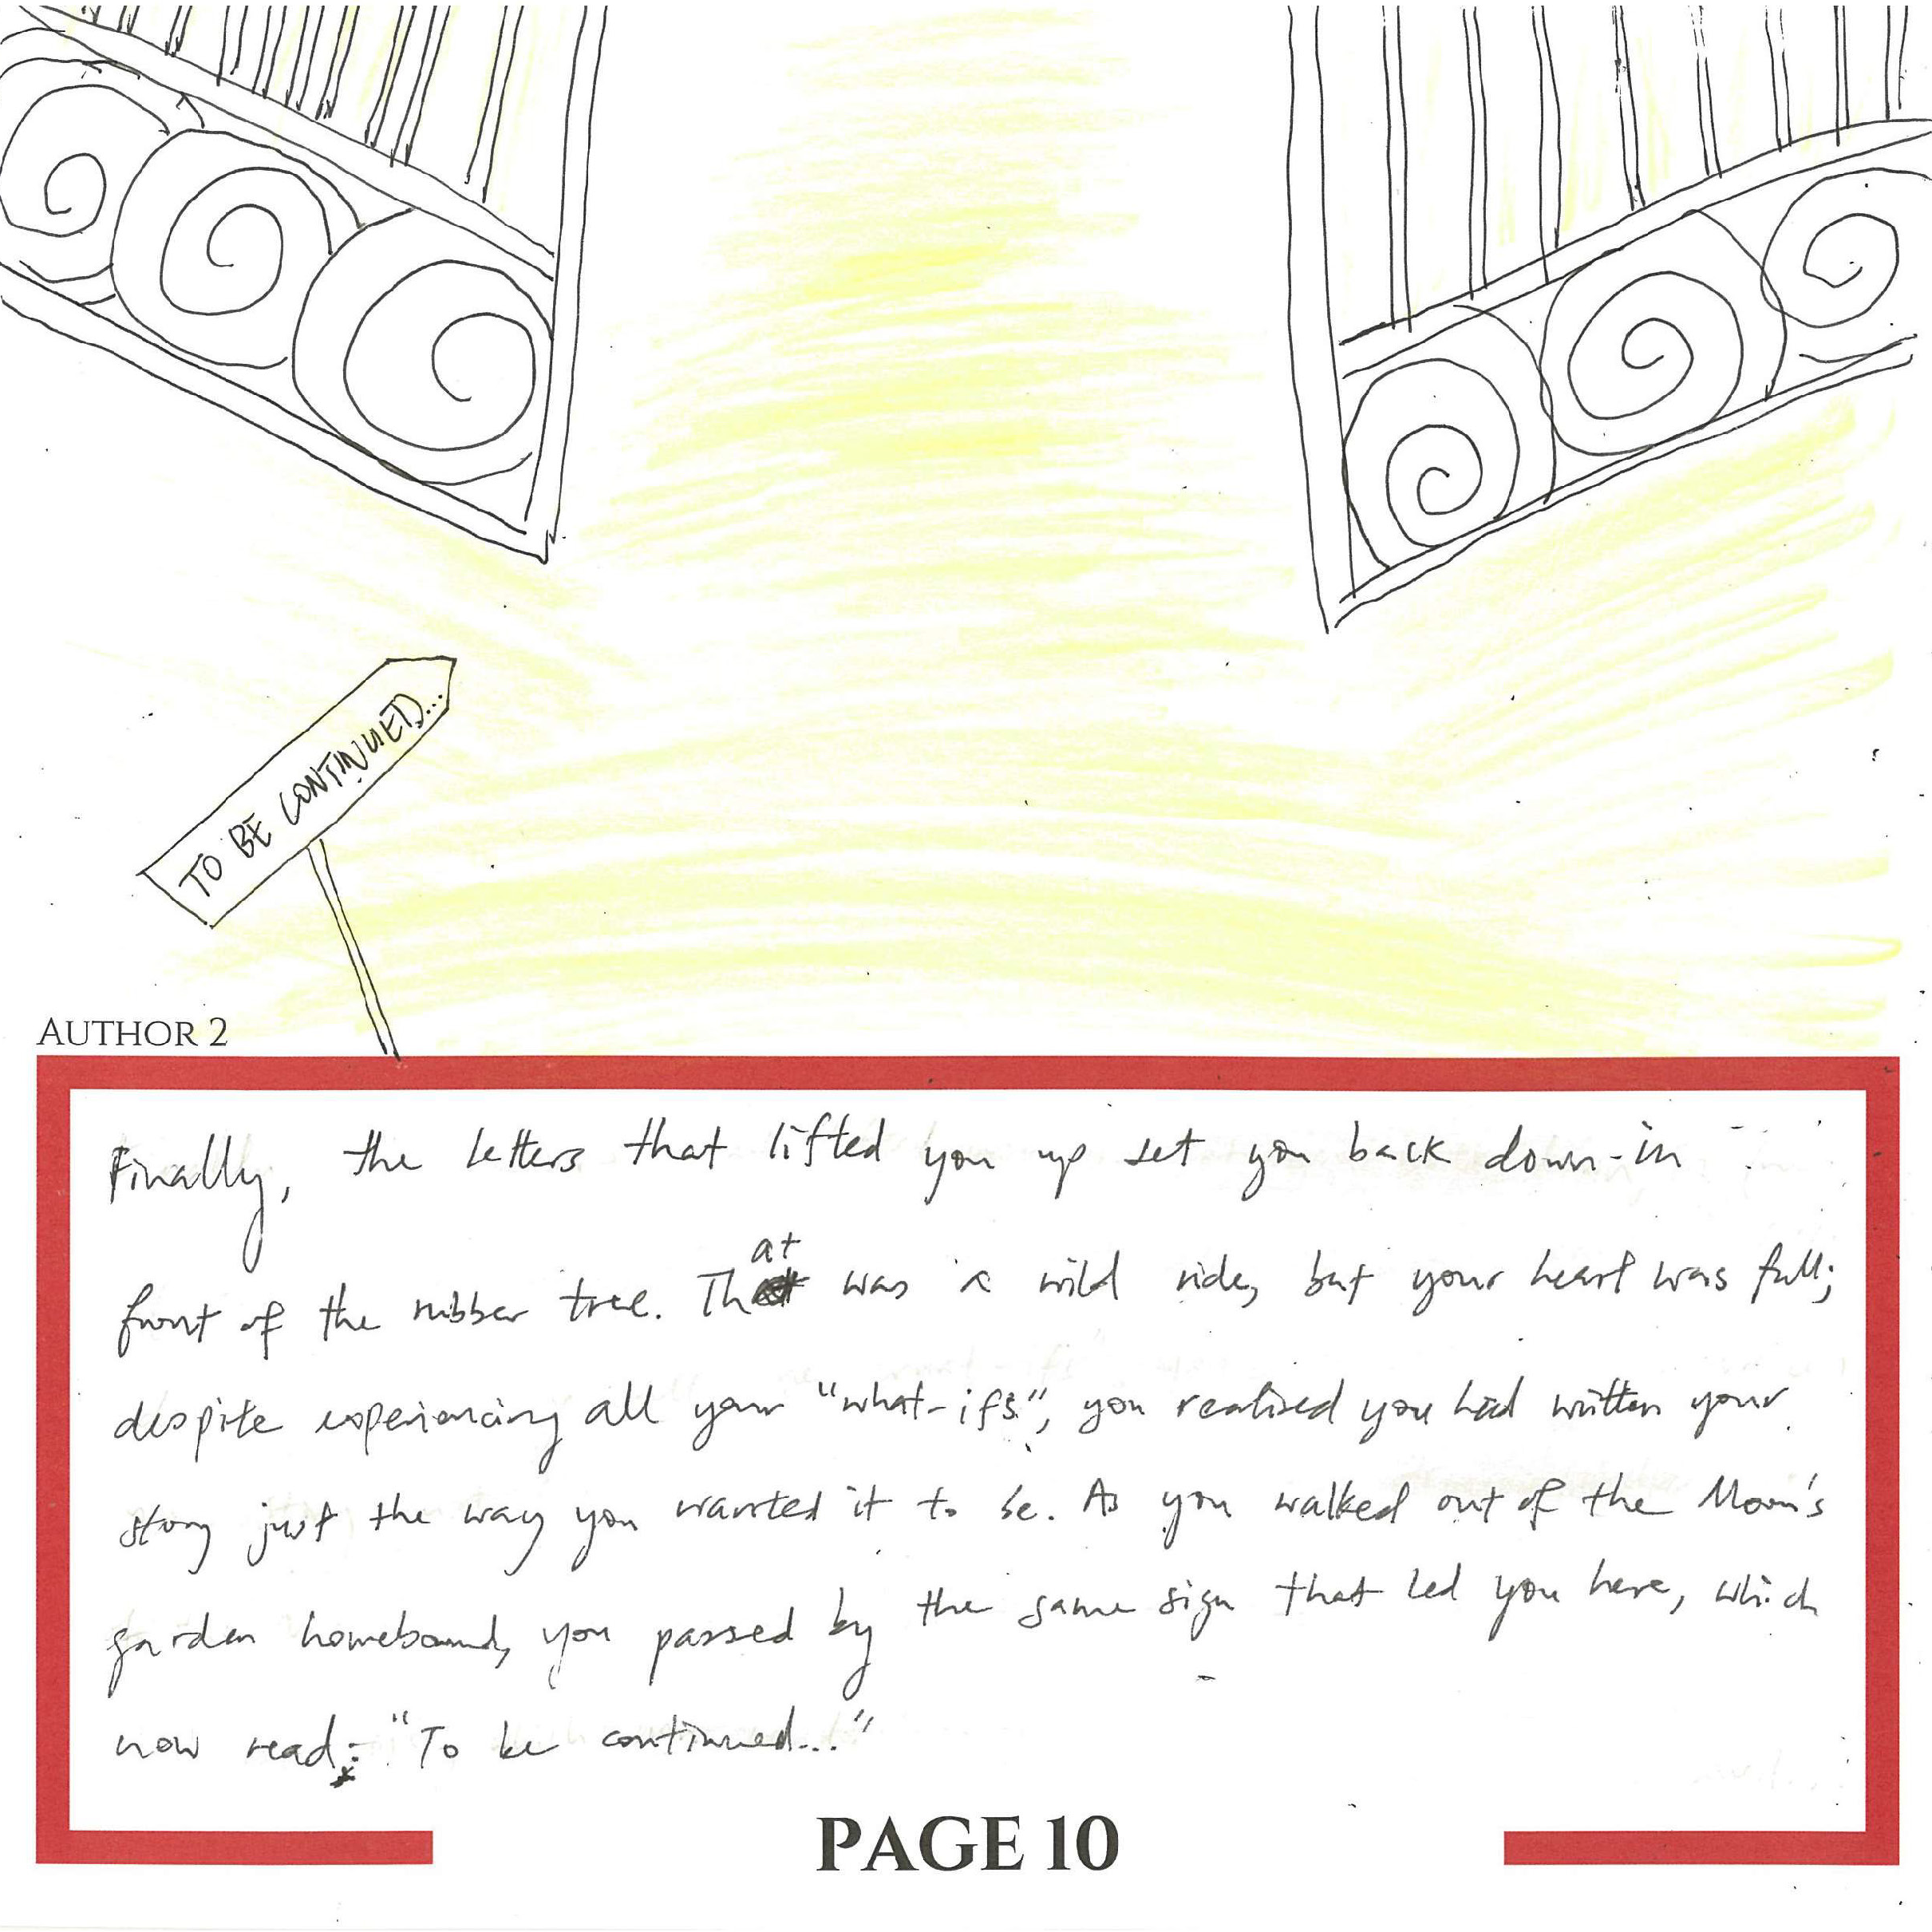 TO BE CONTINUED...
AUTHOR 2
Finally, the letters that lifted you up set you back down-in
front of the rubber tree. That was a wild ride, but your heart was full;
despite experiencing all your "what-ifs", you realised you had written your
story just the way you wanted it to be. As you walked out of the Moon's
garden homebound, you passed by the same sign that led you here, which
now read: "To be continued..."
PAGE 10